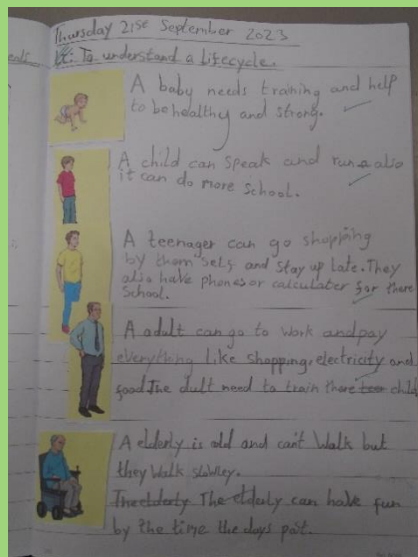 Thursday 21st September 2023
LC: To understand a lifecycle.
A baby needs training and help
to be healthy and strong.
A child can speak and run also
it can do more school.
A teenager can go shopping
by them self and stay up late. They
also have phones or calculater for there
school.
A adult can go to work and pay
everything like shopping, electricity and
food. The dult need to train there child
A elderly is old and can't walk but
they walk slowley.
The elderly The elderly can have fun
by the time the days past.